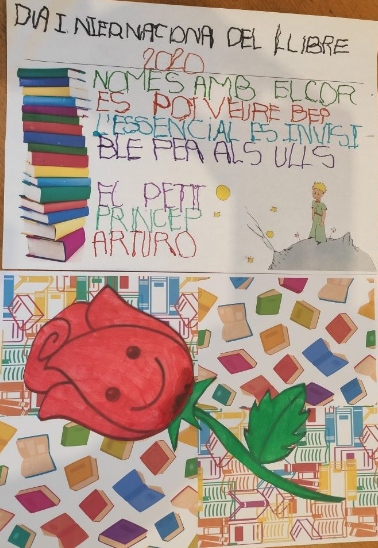 DIA INIERNACIONA DEL LLIBRE
2020
NOMES AMB EL COR
ES POT VEURE BEP
L'ESSENCIAL ES INVISI
BLE PER ALS ULLS
EL PETIT
PRINCEP
ARTURO